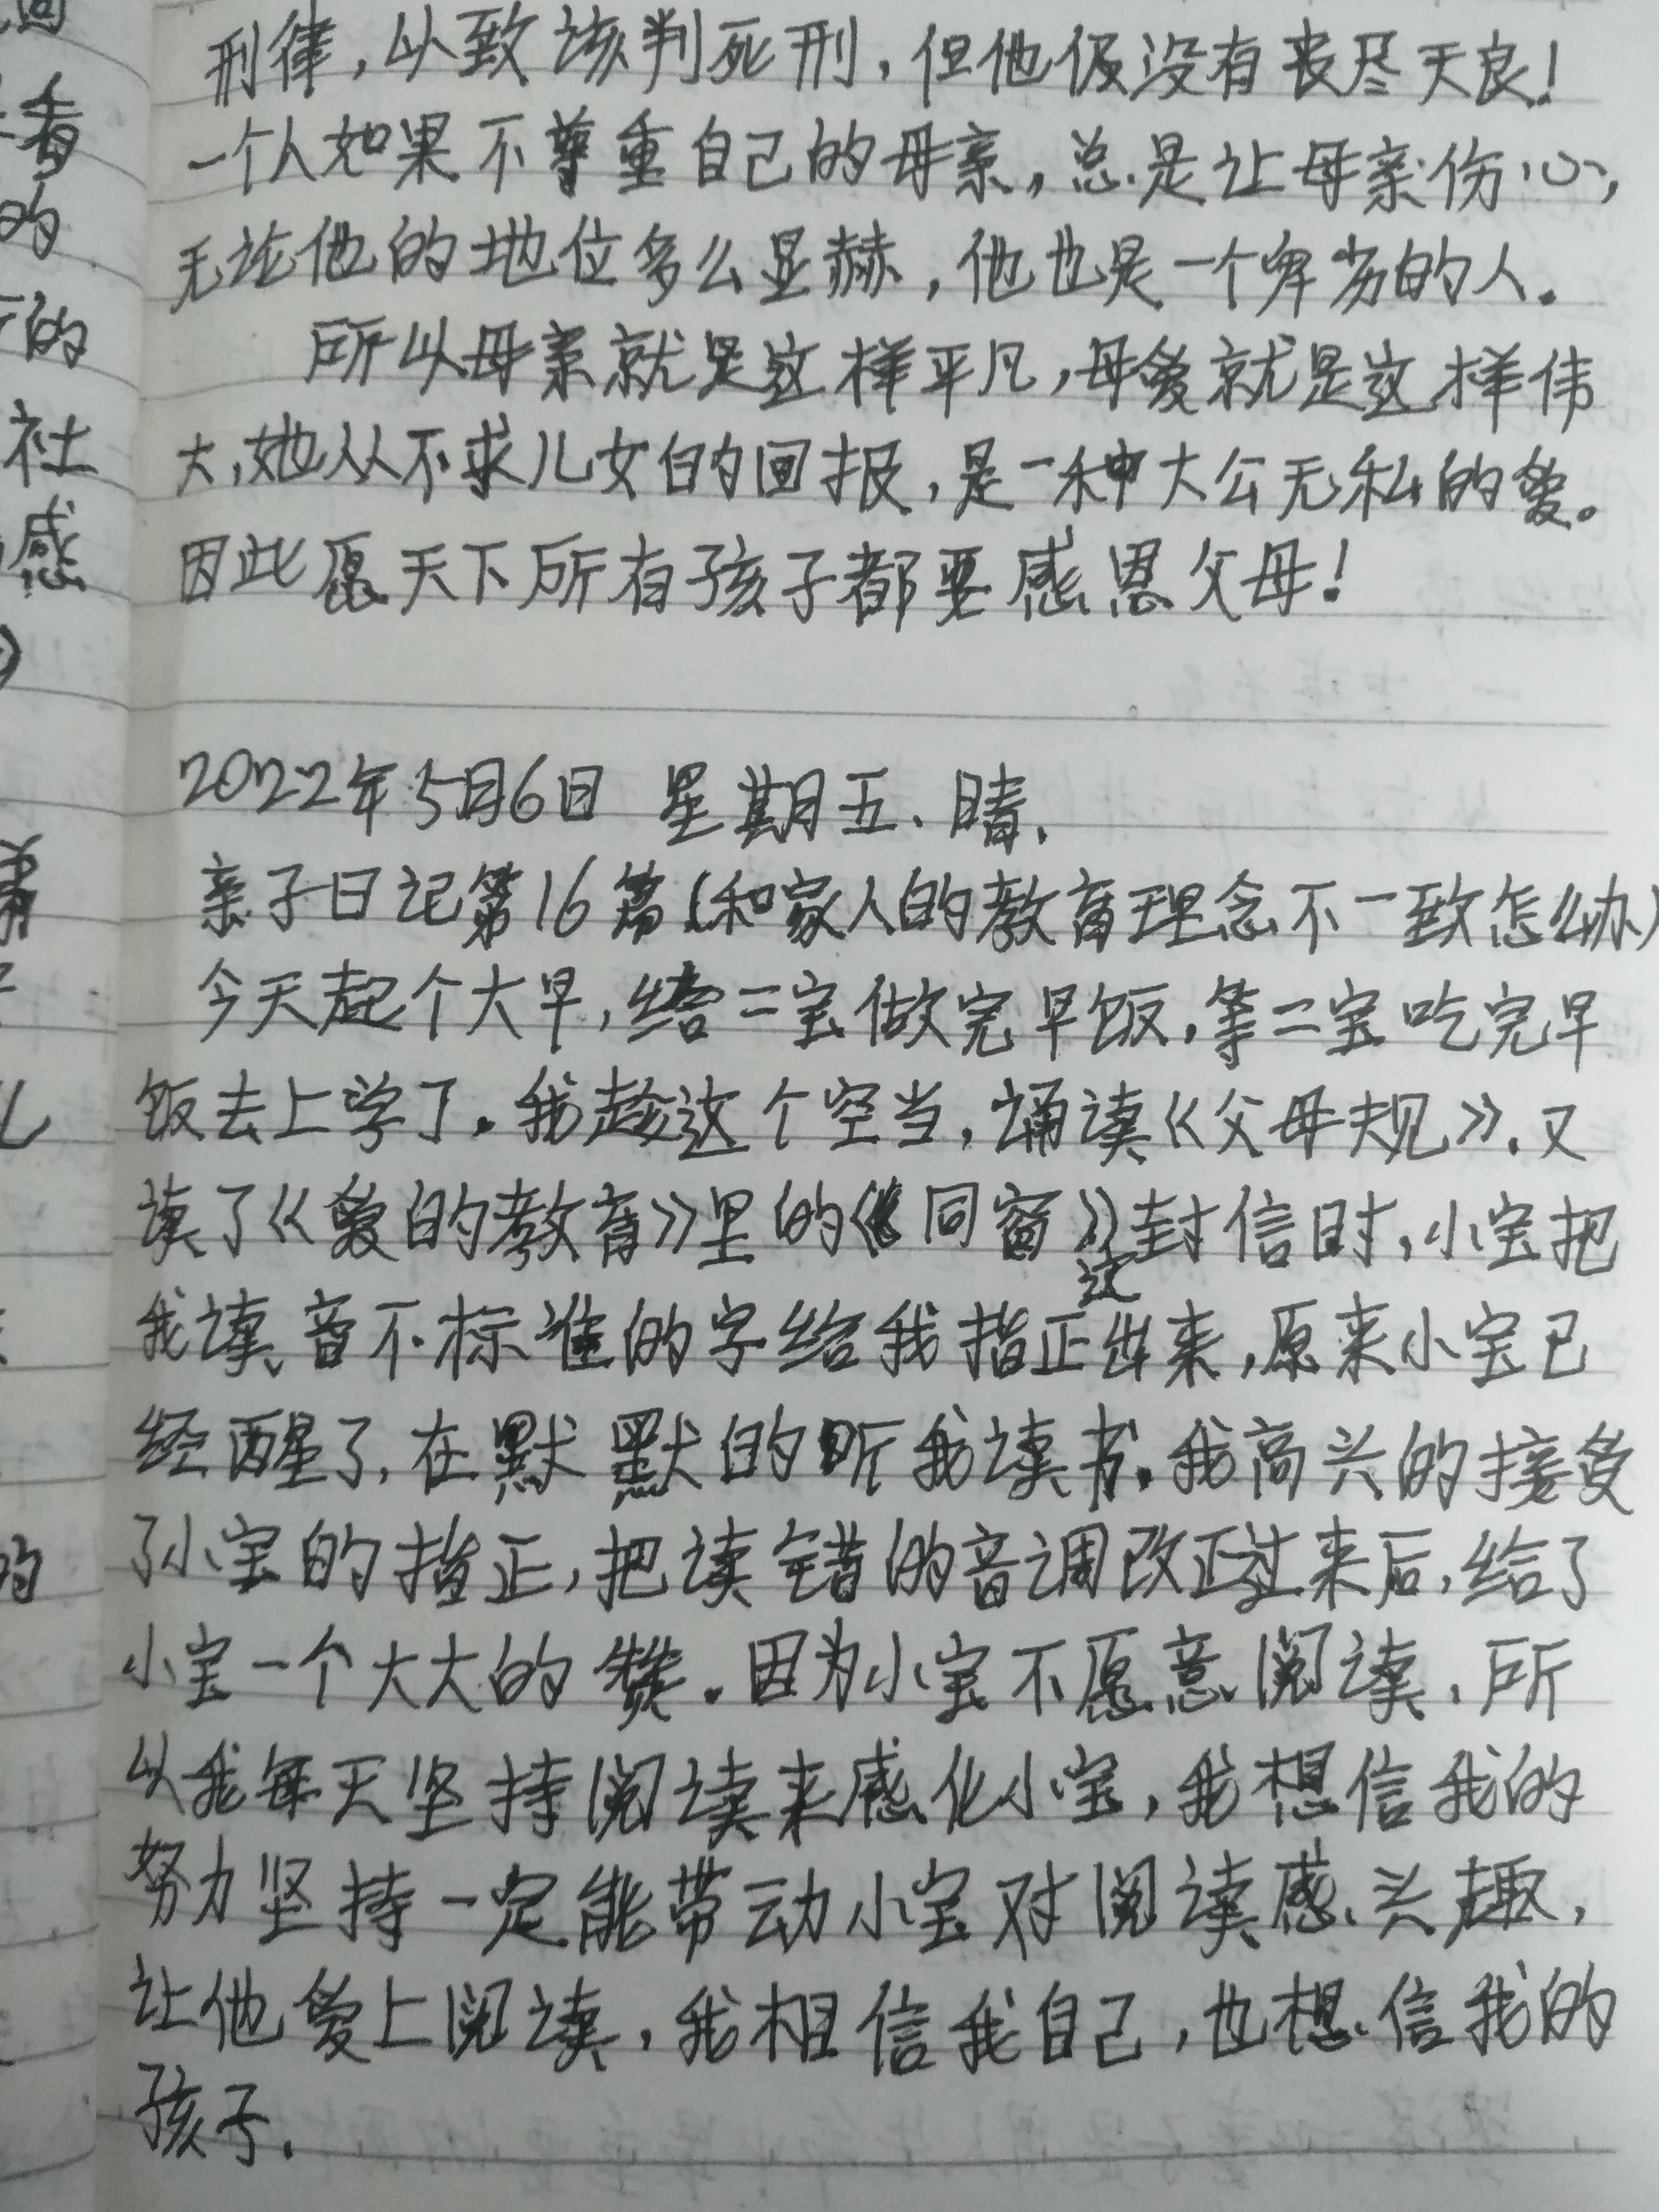 刑律，以致该判死刑，但他仍没有丧尽天良！
一个人如果不尊重自己的母亲，总是让母亲伤心，
无论他的地位多么显赫，他也是一个卑劣的人。
所以母亲就是这样平凡，母爱就是这样伟
大，她从不求儿女的回报，是一种大公无私的爱。
因此愿天下所有孩子都要感恩父母！
2022年5月6日 星期五、晴、
亲子日记第16篇（和家人的教育理念不一致怎么办）
今天起个大早，给二宝做完早饭，等二宝吃完早
饭去上学了。我趁这个空当，诵读《父母规》。又
读了《爱的教育》里的《同窗》这封信时，小宝把
我读音不标准的字给我指正出来，原来小宝已
经醒了，在默默的听我读书。我高兴的接受
了小宝的指正，把读错的音调改正过来后，给了
小宝一个大大的赞。因为小宝不愿意阅读、所
以我每天坚持阅读来感化小宝，我想信我的
努力坚持一定能带动小宝对阅读感兴趣，
让他爱上阅读，我相信我自己，也想信我的
孩子.
看
的
的
社
感
的